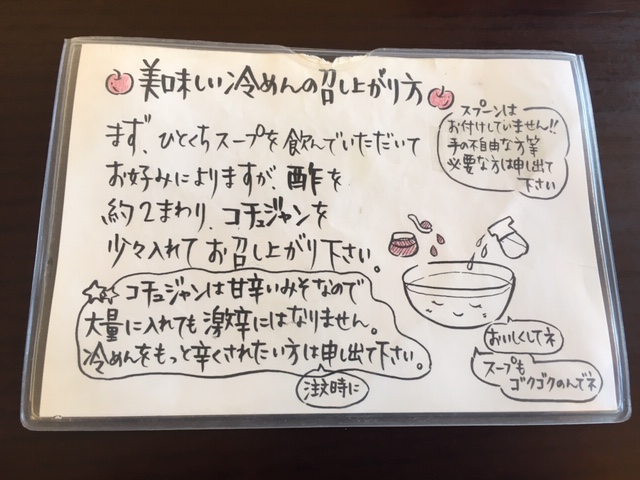 美味しい冷めんの召し上がり方
スプーンは
お付けしていません!!
手の不自由な方等
必要な方は申し出て
下さい
まず、ひとくちスープを飲んでいただいて
お好みによりますが、酢を
約2まわり、コチュジャンを
少々入れてお召し上がり下さい。
コチュジャンは甘辛いみそなので
大量に入れても激辛にはなりません。
冷めんをもっと辛くされたい方は申し出て下さい。
注文時に
おいしくしてネ
スープも
ゴクゴクのんでネ